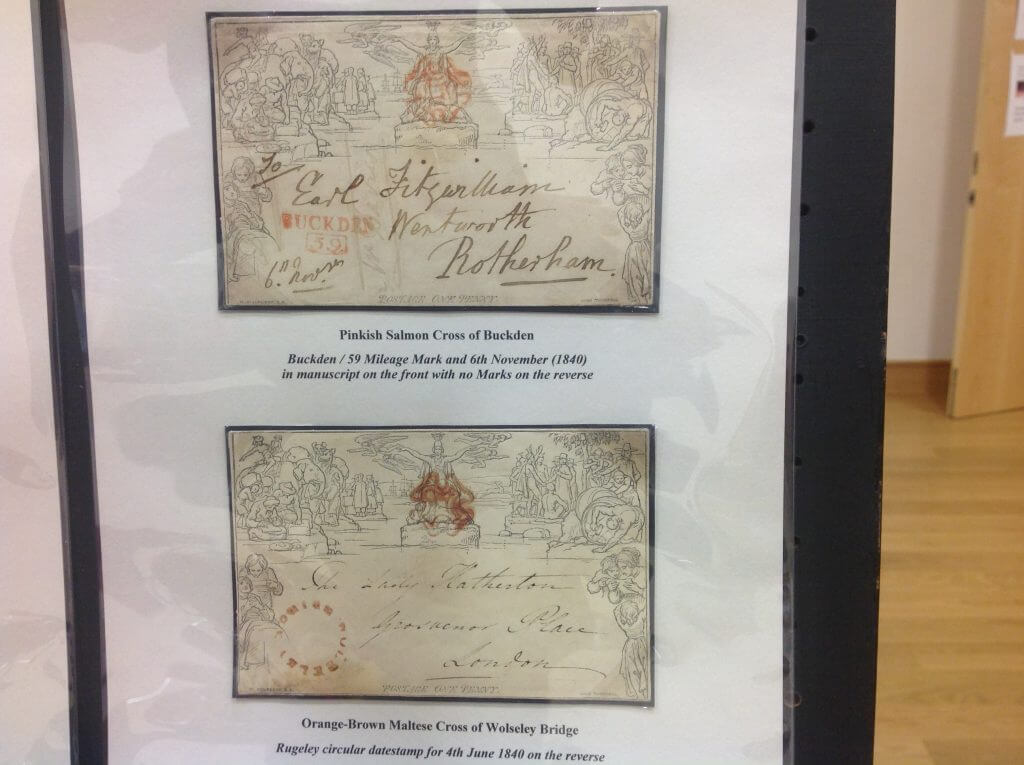 To
Earl Fitzwilliam
BUCKDEN
59
Wentworth
Rotherham.
6th Nov.
POSTAGE ONE PENNY.
Pinkish Salmon Cross of Buckden
Buckden / 59 Mileage Mark and 6th November (1840)
in manuscript on the front with no Marks on the reverse
The Lady Hatherton
Grosvenor Place
London
POSTAGE ONE PENNY.
Orange-Brown Maltese Cross of Wolseley Bridge
Rugeley circular datestamp for 4th June 1840 on the reverse